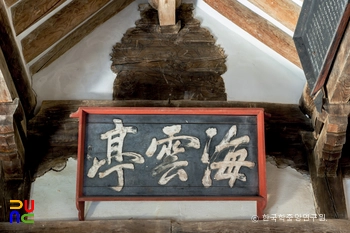 海雲亭
© 한국학중앙연구원